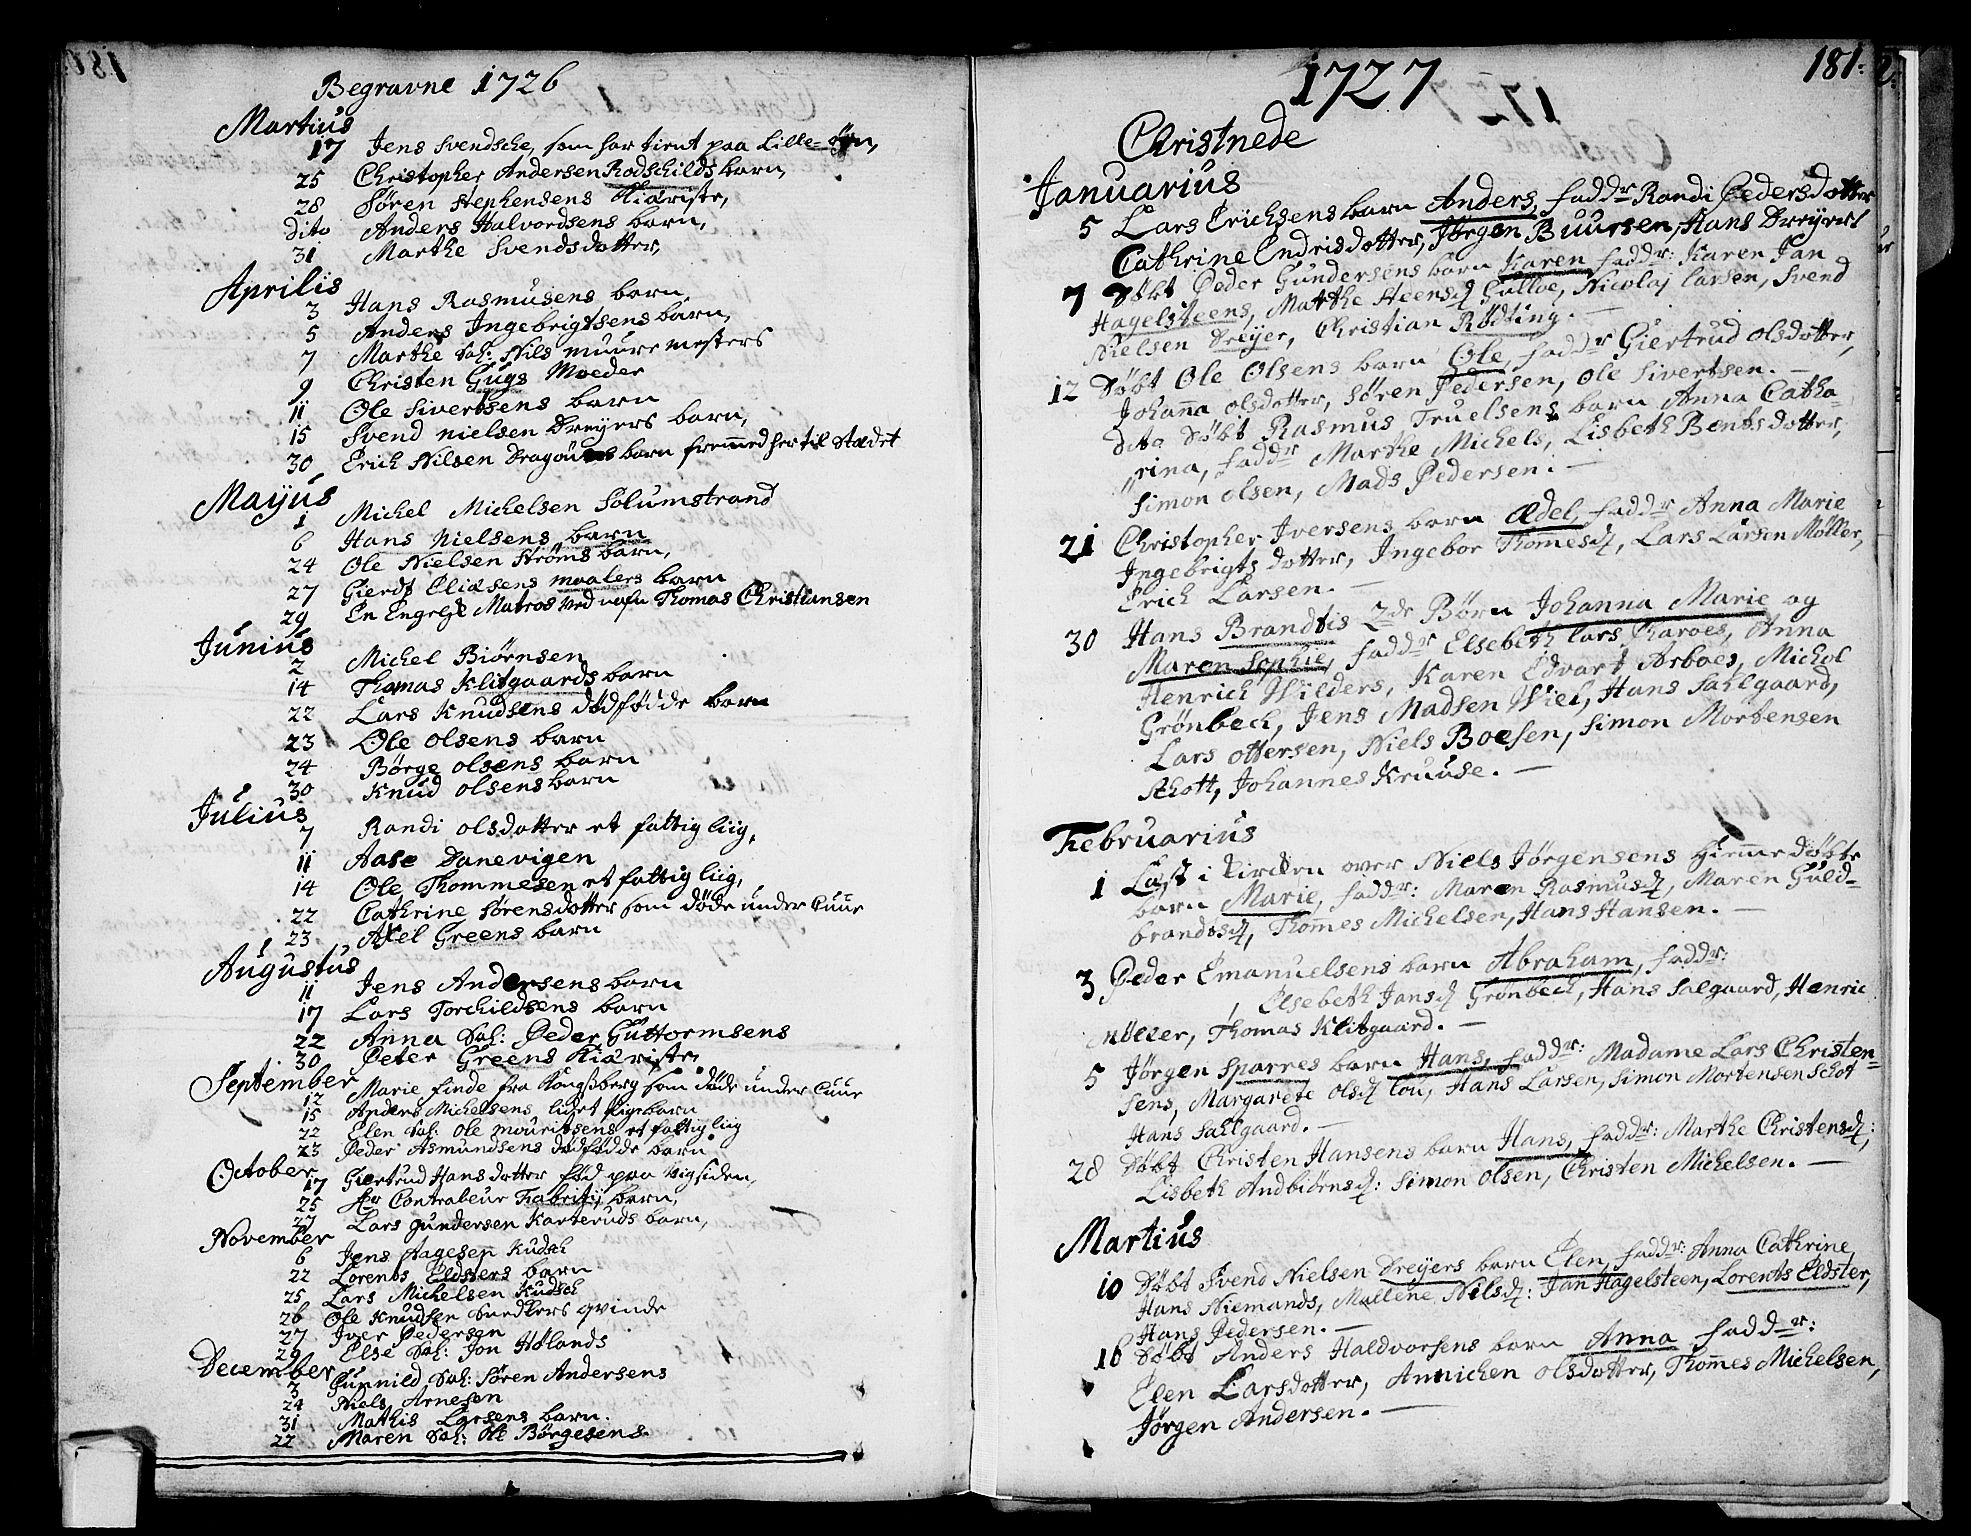 Begravne 1726
Martius
17 Jens Svendsche, som har tient paa Lille-öen,
25 Christopher Andersen Rodschilds barn,
28 Sören Stephensens Kiæriste,
dito Anders Halvordsens barn,
31 Marthe Svendsdotter,
Aprilis
3 Hans Rasmusens barn
5 Anders Ingebrigtsens barn,
7 Marthe Sal: Nils muuremesters
9 Christen Gugs Moeder
11 Ole Sivertsens barn
15 Svend Nielsen Dreyers barn,
30 Erich Nilsen Dragouns barn fremmed her til Stædet
Mayus
1 Michel Michelsen Solumstrand
6 Hans Nielsens barn
24 Ole Nielsen Ströms barn,
27 Gierdt Eliæsens maalers barn
29 En Engelsk Matros ved nafn Thomas Christiansen
Junius
2 Michel Biörnsen
14 Thomas Klitgaards barn
22 Lars Knudsens dödfödde barn
23 Ole Olsens barn
24 Börge Olsens barn
30 Knud Olsens barn
Julius
7 Randi Olsdotter et fattig liig,
11 Aase Danevigen
14 Ole Thommesen et fattig liig,
22 Cathrine Sörensdotter som döde under Cuur
23 Axel Greens barn
Augustus
11 Jens Andersens barn
17 Lars Torchildsens barn
22 Anna Sal: Peder Guttormsens
30 Peter Greens Kiæriste,
September
12 Marie Finde fra Kongsberg som döde under Cuur
15 Anders Michelsens lidet Pigebarn
22 Elen Sal: Ole Mouritsens et fattig liig
23 Peder Asmundsens dödfödde barn
October
17 Giertrud Hansdotter föd paa Vigsiden,
25 Hr Contraleur Fabritij barn,
27 Lars Gundersen Karteruds barn,
November
6 Jens Aagesen Kudsk
22 Lorents Eldsters barn
25 Lars Michelsen Kudsk
26 Ole Knudsen Snedkers qvinde
27 Iver Pedersen
29 Else Sal: Jon Hölands
December
3 Gunnild Sal: Sören Andersens
24 Niels Arnesen
31 Mathis Larsens barn.
22 Maren Sal: Ole Börgesens
181:
1727
Christnede
Januarius
5 Lars Erichsens barn Anders, faddr Randi Pedersdotter
Cathrine Endrisdotter, Jörgen Buursen, Hans Dreyer
7 Döbt Peder Gundersens barn Karen faddr: Karen Jan
Hagelsteens, Marthe Steensd Gulloe, Nicolaj Larsen, Svend
Nielsen Dreyer, Christian Rödting. —
12 Döbt Ole Olsens barn Ole, faddr Giertrud Olsdotter,
Johanna Olsdotter, Sören Pedersen, Ole Sivertsen. —
dito Döbt Rasmus Truelsens barn Anna Catha-
rina, faddr Marthe Michels, Lisbeth Bentsdotter,
Simon Olsen, Mads Pedersen. —
21 Christopher Iversens barn Ædel, faddr Anna Marie
Ingebrigtsdotter, Ingebor Thommesd, Lars Larsen Möller,
Erich Larsen. —
30 Hans Brandtis 2de Börn Johanna Marie og
Maren Sophie, faddr Elsebeth Lars Charoes, Anna
Henrich Wilders, Karen Edvart Arboes, Michel
Grönbeck, Jens Madsen Wiel, Hans Sahlgaard,
Lars Ottersen, Niels Boesen, Simon Mortensen
Schott, Johannes Kruuse. —
Februarius
1 Læst i Kircken over Niels Jörgensens hiemme döbte
barn Marie, faddr: Maren Rasmusd, Maren Guld-
brandsd, Thommes Michelsen, Hans Hansen. —
3 Peder Emanuelsens barn Abraham, faddr:
Elsebeth Jansd Grönbech, Hans Salgaard, Henric
Möller, Thomas Klitgaard. —
5 Jörgen Sparres barn Hans, faddr: Madame Lars Christen-
sens, Margarete Olsd Lou, Hans Larsen, Simon Mortensen Schot
Hans Sahlgaard. —
28 Döbt Christen Hansens barn Hans, faddr: Marthe Christensd:
Lisbeth Andbiörnsd: Simon Olsen, Christen Michelsen. —
Martius
10 Döbt Svend Nielsen Dreyers barn Elen, faddr: Anna Cathrine
Hans Niemands, Mallene Nilsd: Jan Hagelsteen, Lorents Eldster,
Hans Pedersen. —
16 Döbt Anders Haldvorsens barn Anna faddr:
Elen Larsdotter, Annichen Olsdotter, Thommes Michelsen,
Jörgen Andersen. —